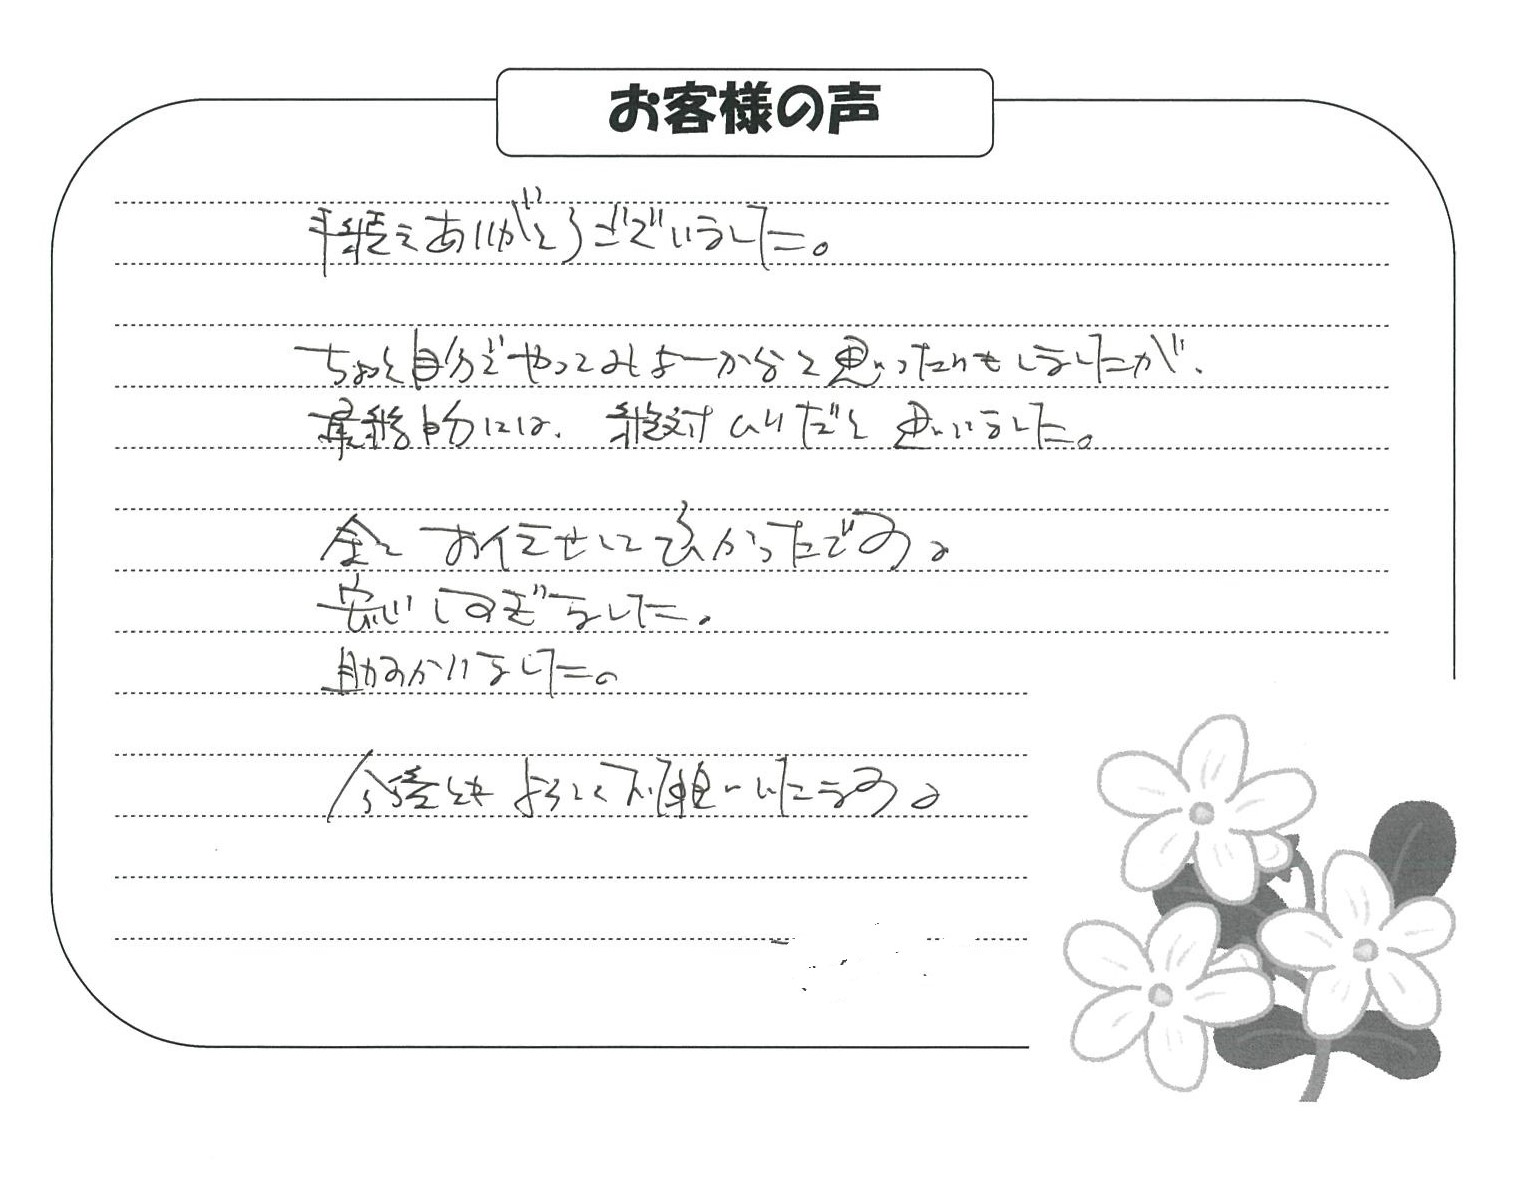 お客様の声
ありがとうございました。
ちょっと自分でやってみよーかなと思ったりもしましたが、
最終的には、絶対ムリだと思いました。
全てお任せして良かったです。
安心してできました。
助かりました。
今後共よろしくお願いいたします。